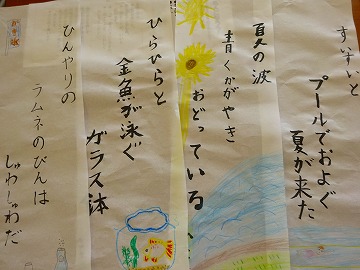 すいすいと
プールでおよぐ
夏が来た
夏の波
青くかがやき
おどっている
ひらひらと
金魚が泳ぐ
ガラス鉢
ひんやりの
ラムネのびんは
しゅわしゅわだ